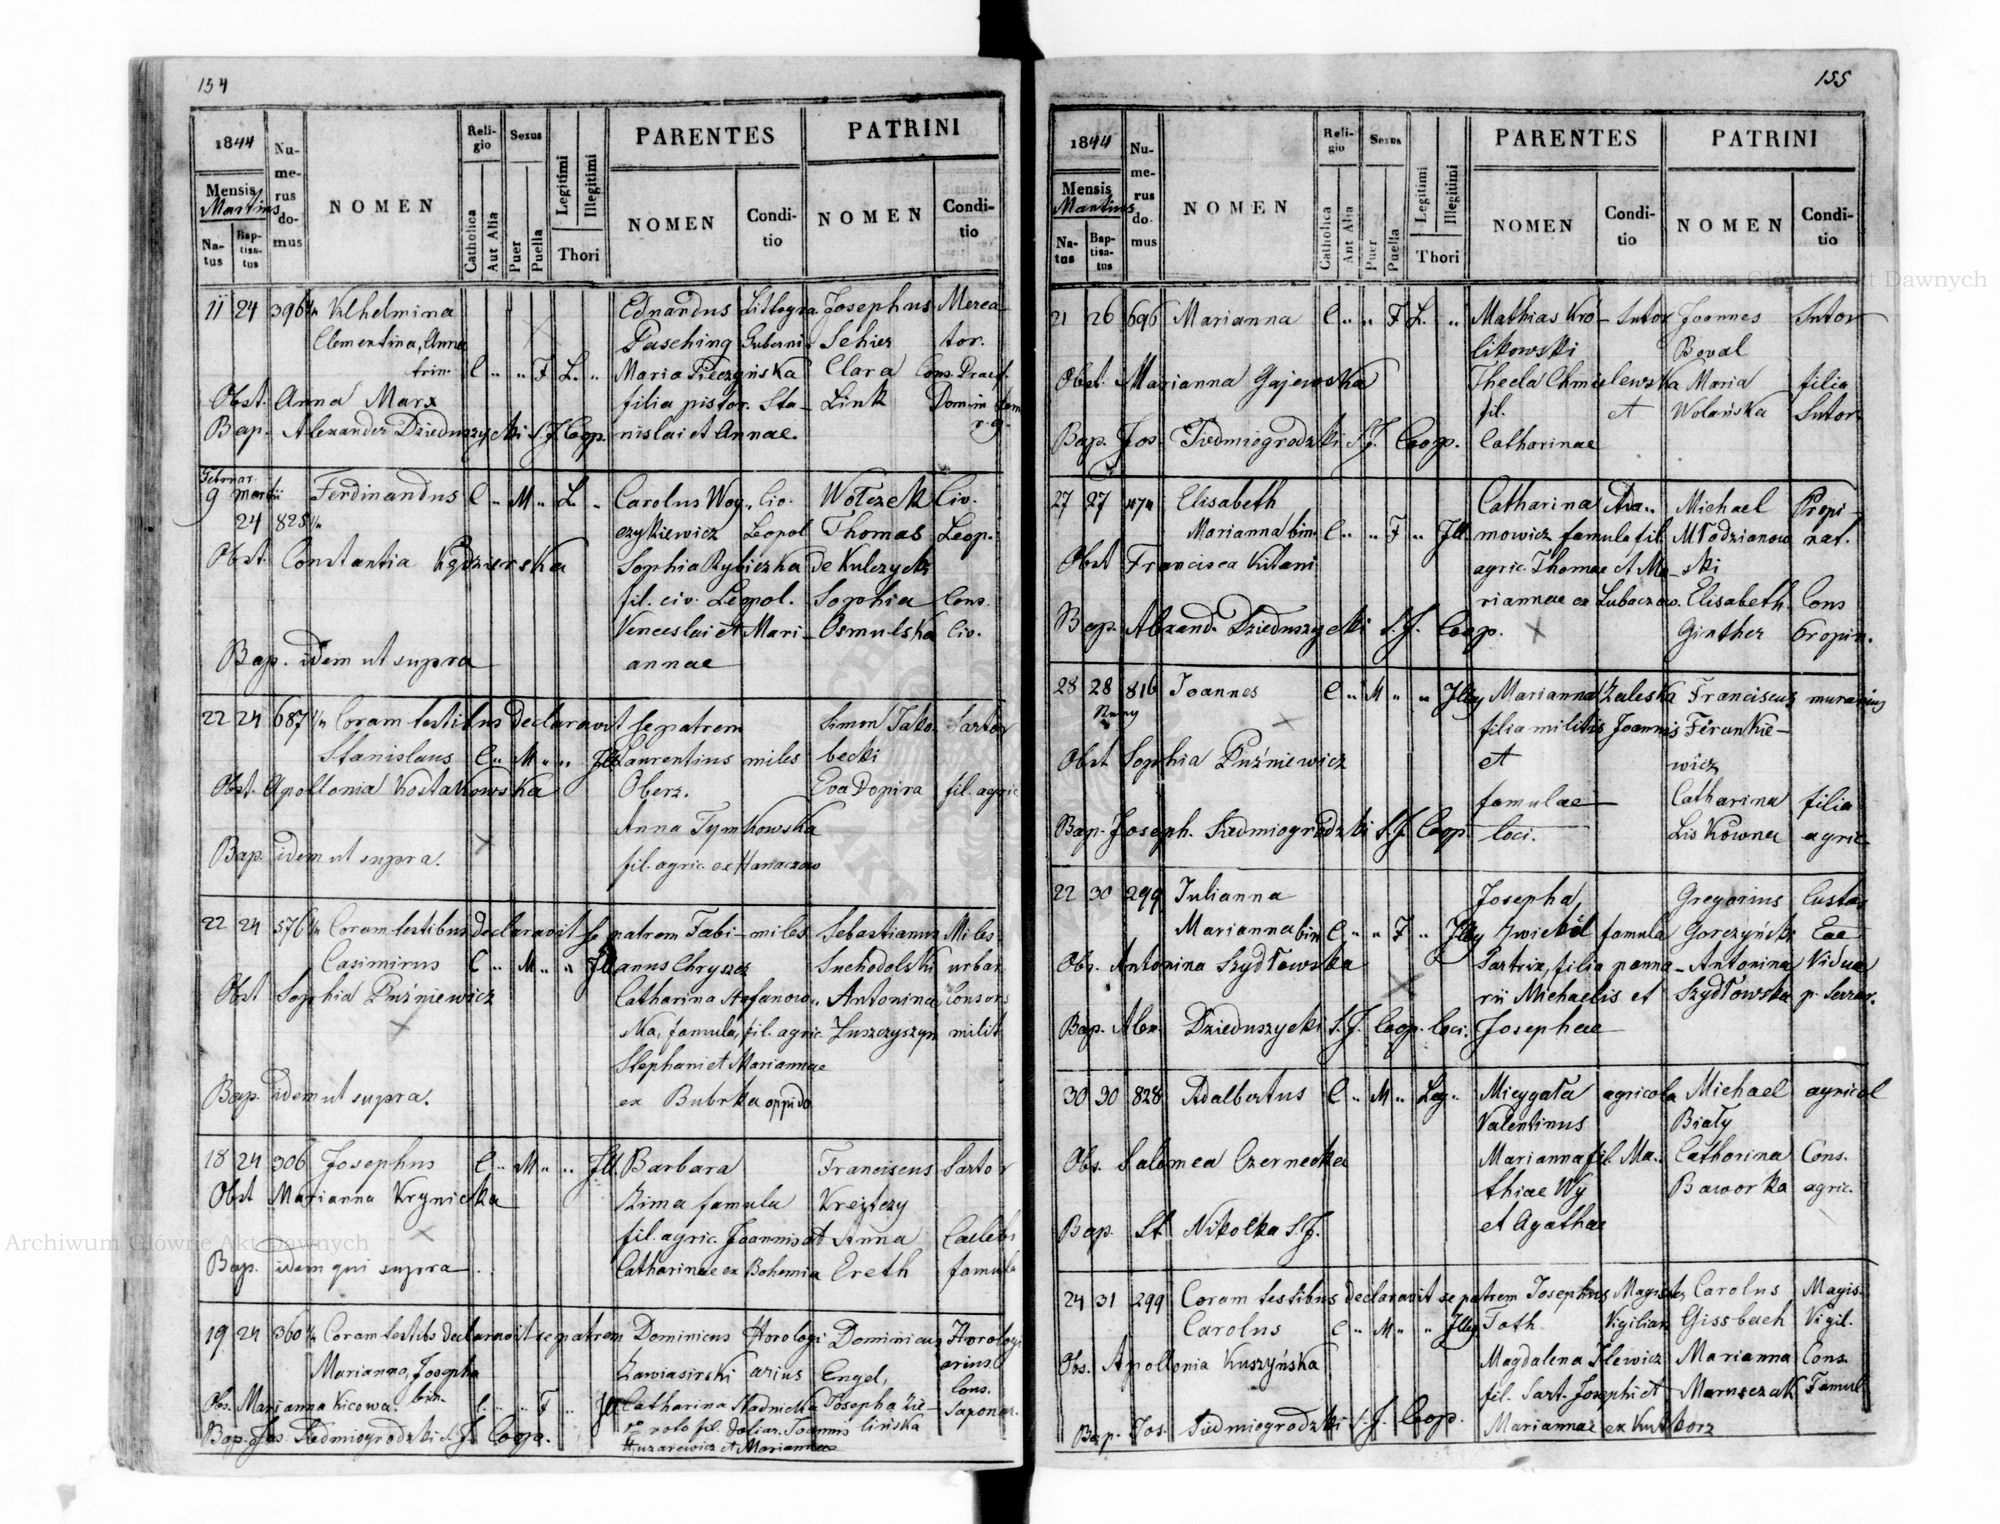 154
1844
Numerus domus
NOMEN
Religio
Sexus
Legitimi
Illegitimi
PARENTES
PATRINI
Mensis
Martius
Natus
Baptisatus
Catholica
Aut Alia
Puer
Puella
Thori
NOMEN
Conditio
NOMEN
Conditio
11 24 396 Vilhelmina Eduardus Littogra. Josephus Merca-
Clementina, Anna Pasching Guberni Sehier tor.
trin. C „ „ F L. „ Maria Pieczyńska Clara Cons. Praef.
Obst. Anna Marx filia pistor. Sta- Link Domin
Bap. Alexander Dzieduszycki S.J. Coop. nislai et Annae.
Februar.
9 Martii Ferdinandus C „ M „ L. „ Carolus Woy- Civ. Wołczek Civ.
24 825 czykiewicz Leopol Thomas Leop.
Obst. Constantia Kędzierska Sophia Rybiczka de Kulczycki
fil. civ. Leopol. Sophia Cons.
Venceslai et Mari- Osmulska Civ.
Bap. idem ut supra annae
22 24 687 Coram testibus declaravit se patrem Simon Jako- Sartor
Stanislaus C „ M „ „ Ill Laurentius miles becki
Obst. Apollonia Kostakowska Oberz. Eva Dopira fil. agric
Anna Tymkowska
Bap. idem ut supra.
fil. agric ex Hanaczow
22 24 576 Coram testibus declaravit se patrem Fabi- miles Sebastianus Miles
Casimirus C „ M „ „ Ill anus Chryszcz Suchodolski urbar.
Obst Sophia Puźniewicz Catharina Stefanow- Antonina Consors
ska, famula, fil. agric. Juszczyszyn milit
Stephani et Mariannae
Bap. idem ut supra. ex Bubrka oppido
18 24 306 Josephus C „ M „ „ Ill Barbara Franciscus Sartor
Obst Marianna Krynicka Zima famula Krejiczy
fil. agric. Joannis et Anna Caelebs
Bap. idem qui supra. Catharinae ex Bohemia Ereth famula
19 24 360 Coram testibs declaravit se patrem Dominicus Horologi Dominicus Horologi
Marianna, Josepha Zawiasirski arius Engel, arius.
bin. Cons.
Obs. Marianna Kicowa. C „ „ F „ Ill Catharina Nadnicka Josepha Zie- Saponar.
Bap. Jos. Siedmiogrodzki S.J. Coop. voto fil. doliar. Joannis lińska
Huzarewicz et Mariannae
155
1844
Numerus domus
NOMEN
Religio
Sexus
Legitimi
Illegitimi
PARENTES
PATRINI
Mensis
Martius
Natus
Baptisatus
Catholica
Aut Alia
Puer
Puella
Thori
NOMEN
Conditio
NOMEN
Conditio
21 26 696 Marianna C „ „ F L. „ Mathias Kró- Sutor Joannes Sutor
likowski Boval
Obst. Marianna Gajewska Thecla Chmielewska Maria filia
fil. et Wolańska Sutor
Bap. Jos Siedmiogrodzki S.J. Coop. Catharinae
27 27 Elisabeth Catharina Ada- Michael Propi-
Marianna bin. C „ „ F „ Ill mowicz famula fil. Młodzianow nat.
Obst Francisca Kitani agric. Thomae et Ma- ski
riannae ex Lubaczow. Elisabeth Cons
Bap. Alexand. Dzieduszycki S.J. Coop. Ginther Propin.
28 28 816 Joannes C „ M „ „ Illeg Marianna Zaleska Franciscus murarius
filia militis Joannis Ferunkie-
Obst Sophia Puźniewicz et wicz
famulae Catharina filia
Bap. Joseph. Siedmiogrodzki S.J. Coop. loci. Liskówna agric.
22 30 299 Julianna Josepha, Gregorius Custos
Marianna bin C „ „ F „ Illeg famula Gorczyński Eae
Obs. Antonina Szydłowska Sartrix, filia panna- Antonina Vidua
rii Michaelis et Szydłowska p. Servar.
Bap. Alex. Dzieduszycki S.J. Coop. Loci. Josephae
30 30 828 Adalbertus C „ M „ Leg „ Mieygała agricola Michael agricol
Valentinus Biały
Obs. Salomea Czernecka Marianna fil. Ma- Catharina Cons.
thiae Wy Baworka agric.
Bap. St. Nikolka S.J. et Agathae
24 31 299 Coram testibus declaravit se patrem Josephus Magister Carolus Magis.
Carolus C „ M „ „ Illeg Toth Vigiliar. Gissbach Vigil.
Obs. Apollonia Kuszyńska Magdalena Ilewicz Marianna Cons.
fil. Sart. Josephi et Maruszczak Famul
Bap. Jos. Siedmiogrodzki S.J. Coop. Mariannae ex Kutkorz
Archiwum Główne Akt Dawnych
Archiwum Główne Akt Dawnych